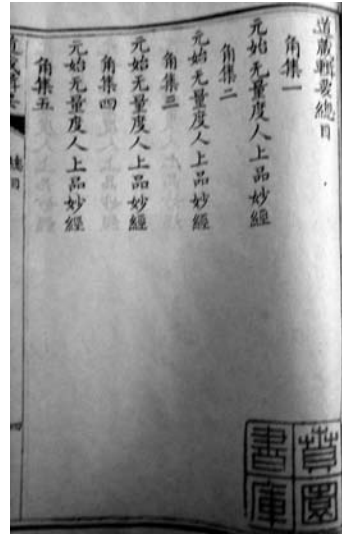 道藏輯要總目
角集一
元始无量度人上品妙經
角集二
元始无量度人上品妙經
角集三
元始无量度人上品妙經
角集四
元始无量度人上品妙經
角集五
總目
賁園書庫